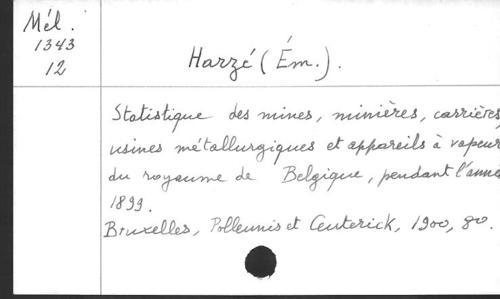 Mél.
1343
12
Harzé (Ém.).
Statistique des mines, minières, carrières,
usines métallurgiques et appareils à vapeur
du royaume de Belgique, pendant l'année
1899.
Bruxelles, Polleunis et Ceuterick, 1900, 8o.